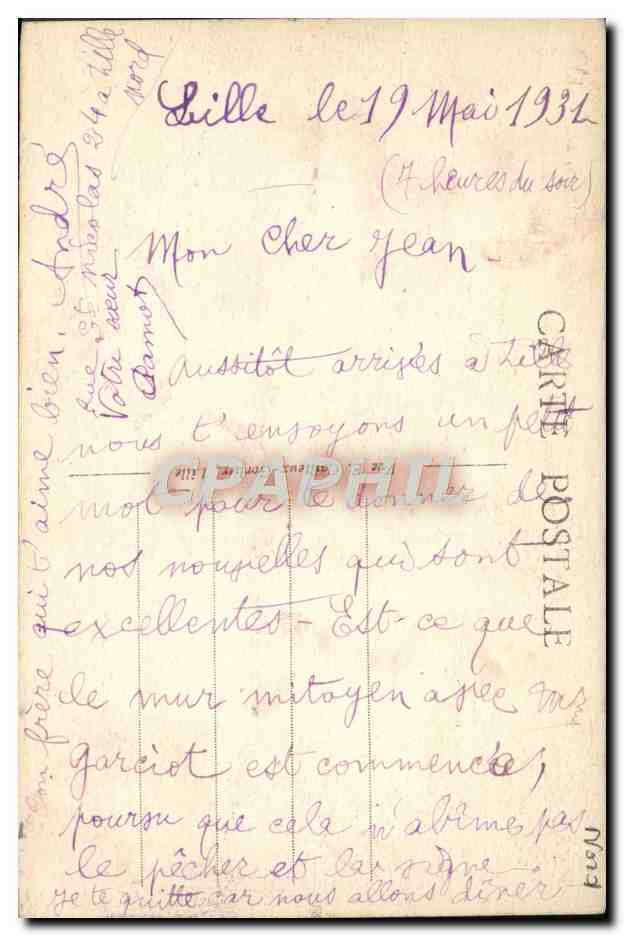 Lille le 19 Mai 1931
(7 heures du soir)
Mon cher Jean -
Aussitôt arrivés à Lille
nous t'envoyons un petit
mot pour te donner de
nos nouvelles qui sont
excellentes - Est-ce que
le mur mitoyen avec Mr
Garciot est commencé,
pourvu que cela n'abîme pas
le pêcher et la vigne
je te quitte car nous allons dîner
Ton frère qui t'aime bien. André
rue St Nicolas 24 a Lille
Nord
Votre sœur
CARTE POSTALE
CPAPHIL